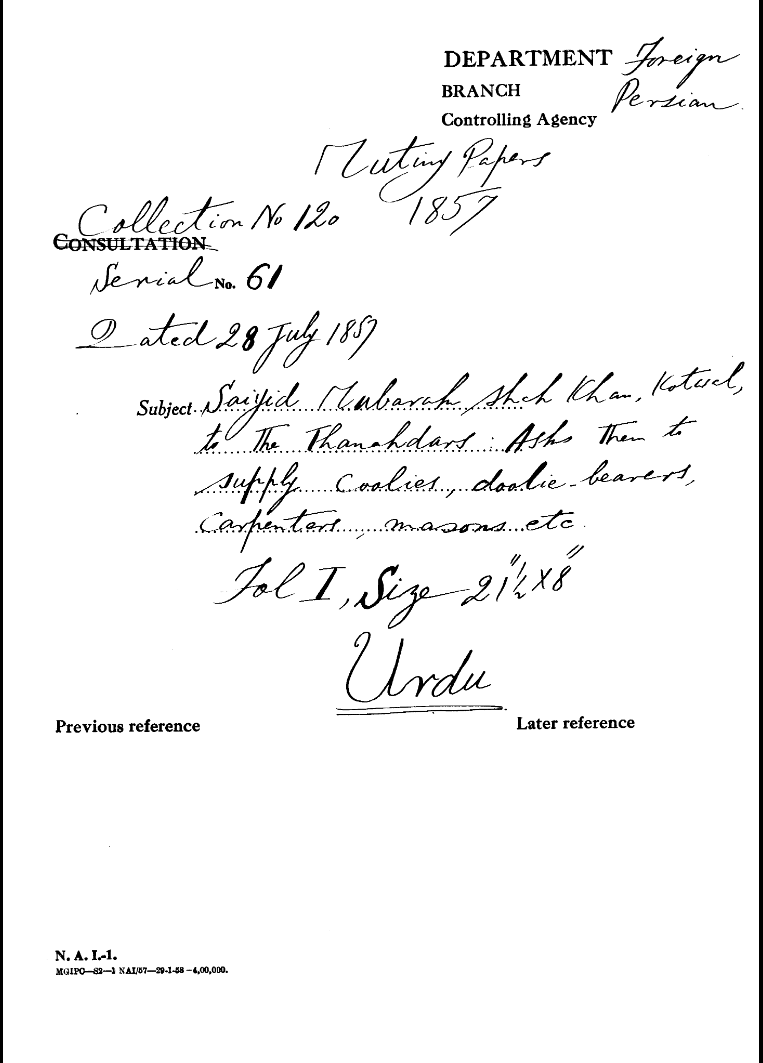 DEPARTMENT Foreign
BRANCH Persian
Controlling Agency
Mutiny Papers
1857
Collection No 120
CONSULTATION
Serial No. 61
Dated 28 July 1857
Subject Saiyid Mubarak Shah Khan, Kotwal,
to The Thanahdars: Asks them to
supply coolies, doolie-bearers,
carpenters, masons etc
Fol I, Size 21"½ X 8"
Urdu
Previous reference Later reference
N. A. I.-1.
MGIPC—S2—1 NAI/57—29-1-58—4,00,000.